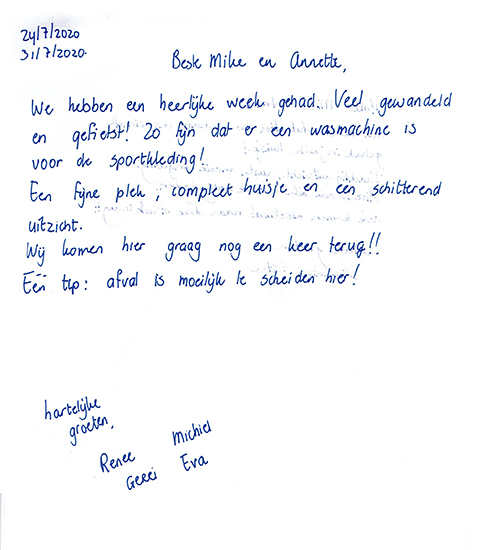 24/7/2020
31/7/2020.
Beste Mike en Annette,
We hebben een heerlijke week gehad. Veel gewandeld
en gefietst! Zo fijn dat er een wasmachine is
voor de sportkleding!
Een fijne plek, compleet huisje en een schitterend
uitzicht.
Wij komen hier graag nog een keer terug!!
Eén tip: afval is moeilijk te scheiden hier!
hartelijke
groeten,
Michiel
Renee
Eva